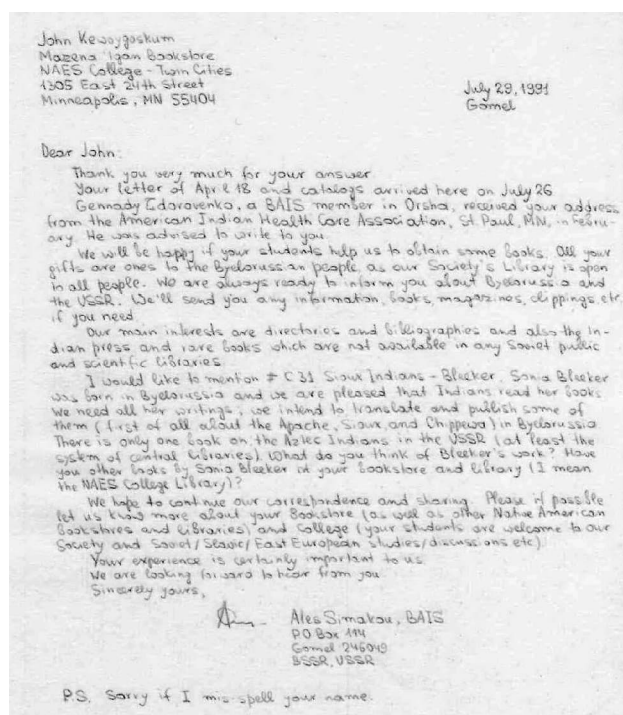 John Kewaygoskum
Mazena 'igan Bookstore
NAES College - Twin Cities
1305 East 24th Street
Minneapolis, MN 55404
July 29, 1991
Gomel
Dear John:
Thank you very much for your answer.
Your letter of April 18 and catalogs arrived here on July 26
Gennady Zdorovenko, a BAIS member in Orsha, received your address
from the American Indian Health Care Association, St. Paul, MN, in Febru-
ary. He was advised to write to you.
We will be happy if your students help us to obtain some books. All your
gifts are ones to the Byelorussian people, as our Society's Library is open
to all people. We are always ready to inform you about Byelorussia and
the USSR. We'll send you any information, books, magazines, clippings, etc.
if you need.
Our main interests are directories and bibliographies and also the In-
dian press and rare books which are not available in any Soviet public
and scientific libraries.
I would like to mention # C31 Sioux Indians - Bleeker. Sonia Bleeker
was born in Byelorussia and we are pleased that Indians read her books
We need all her writings; we intend to translate and publish some of
them (first of all about the Apache, Sioux, and Chippewa) in Byelorussia
There is only one book on the Aztec Indians in the USSR (at least the
system of central libraries). What do you think of Bleeker's work? Have
you other books by Sonia Bleeker at your bookstore and library (I mean
the NAES College Library)?
We hope to continue our correspondence and sharing. Please if possible
let us know more about your Bookstore (as well as other Native American
bookstores and libraries) and College (your students are welcome to our
Society and Soviet/Slavic/East European studies/discussions etc).
Your experience is certainly important to us
We are looking forward to hear from you
Sincerely yours,
Ales Simakou, BAIS
PO Box 114
Gomel 246049
BSSR, USSR
P.S. Sorry if I mis-spell your name.